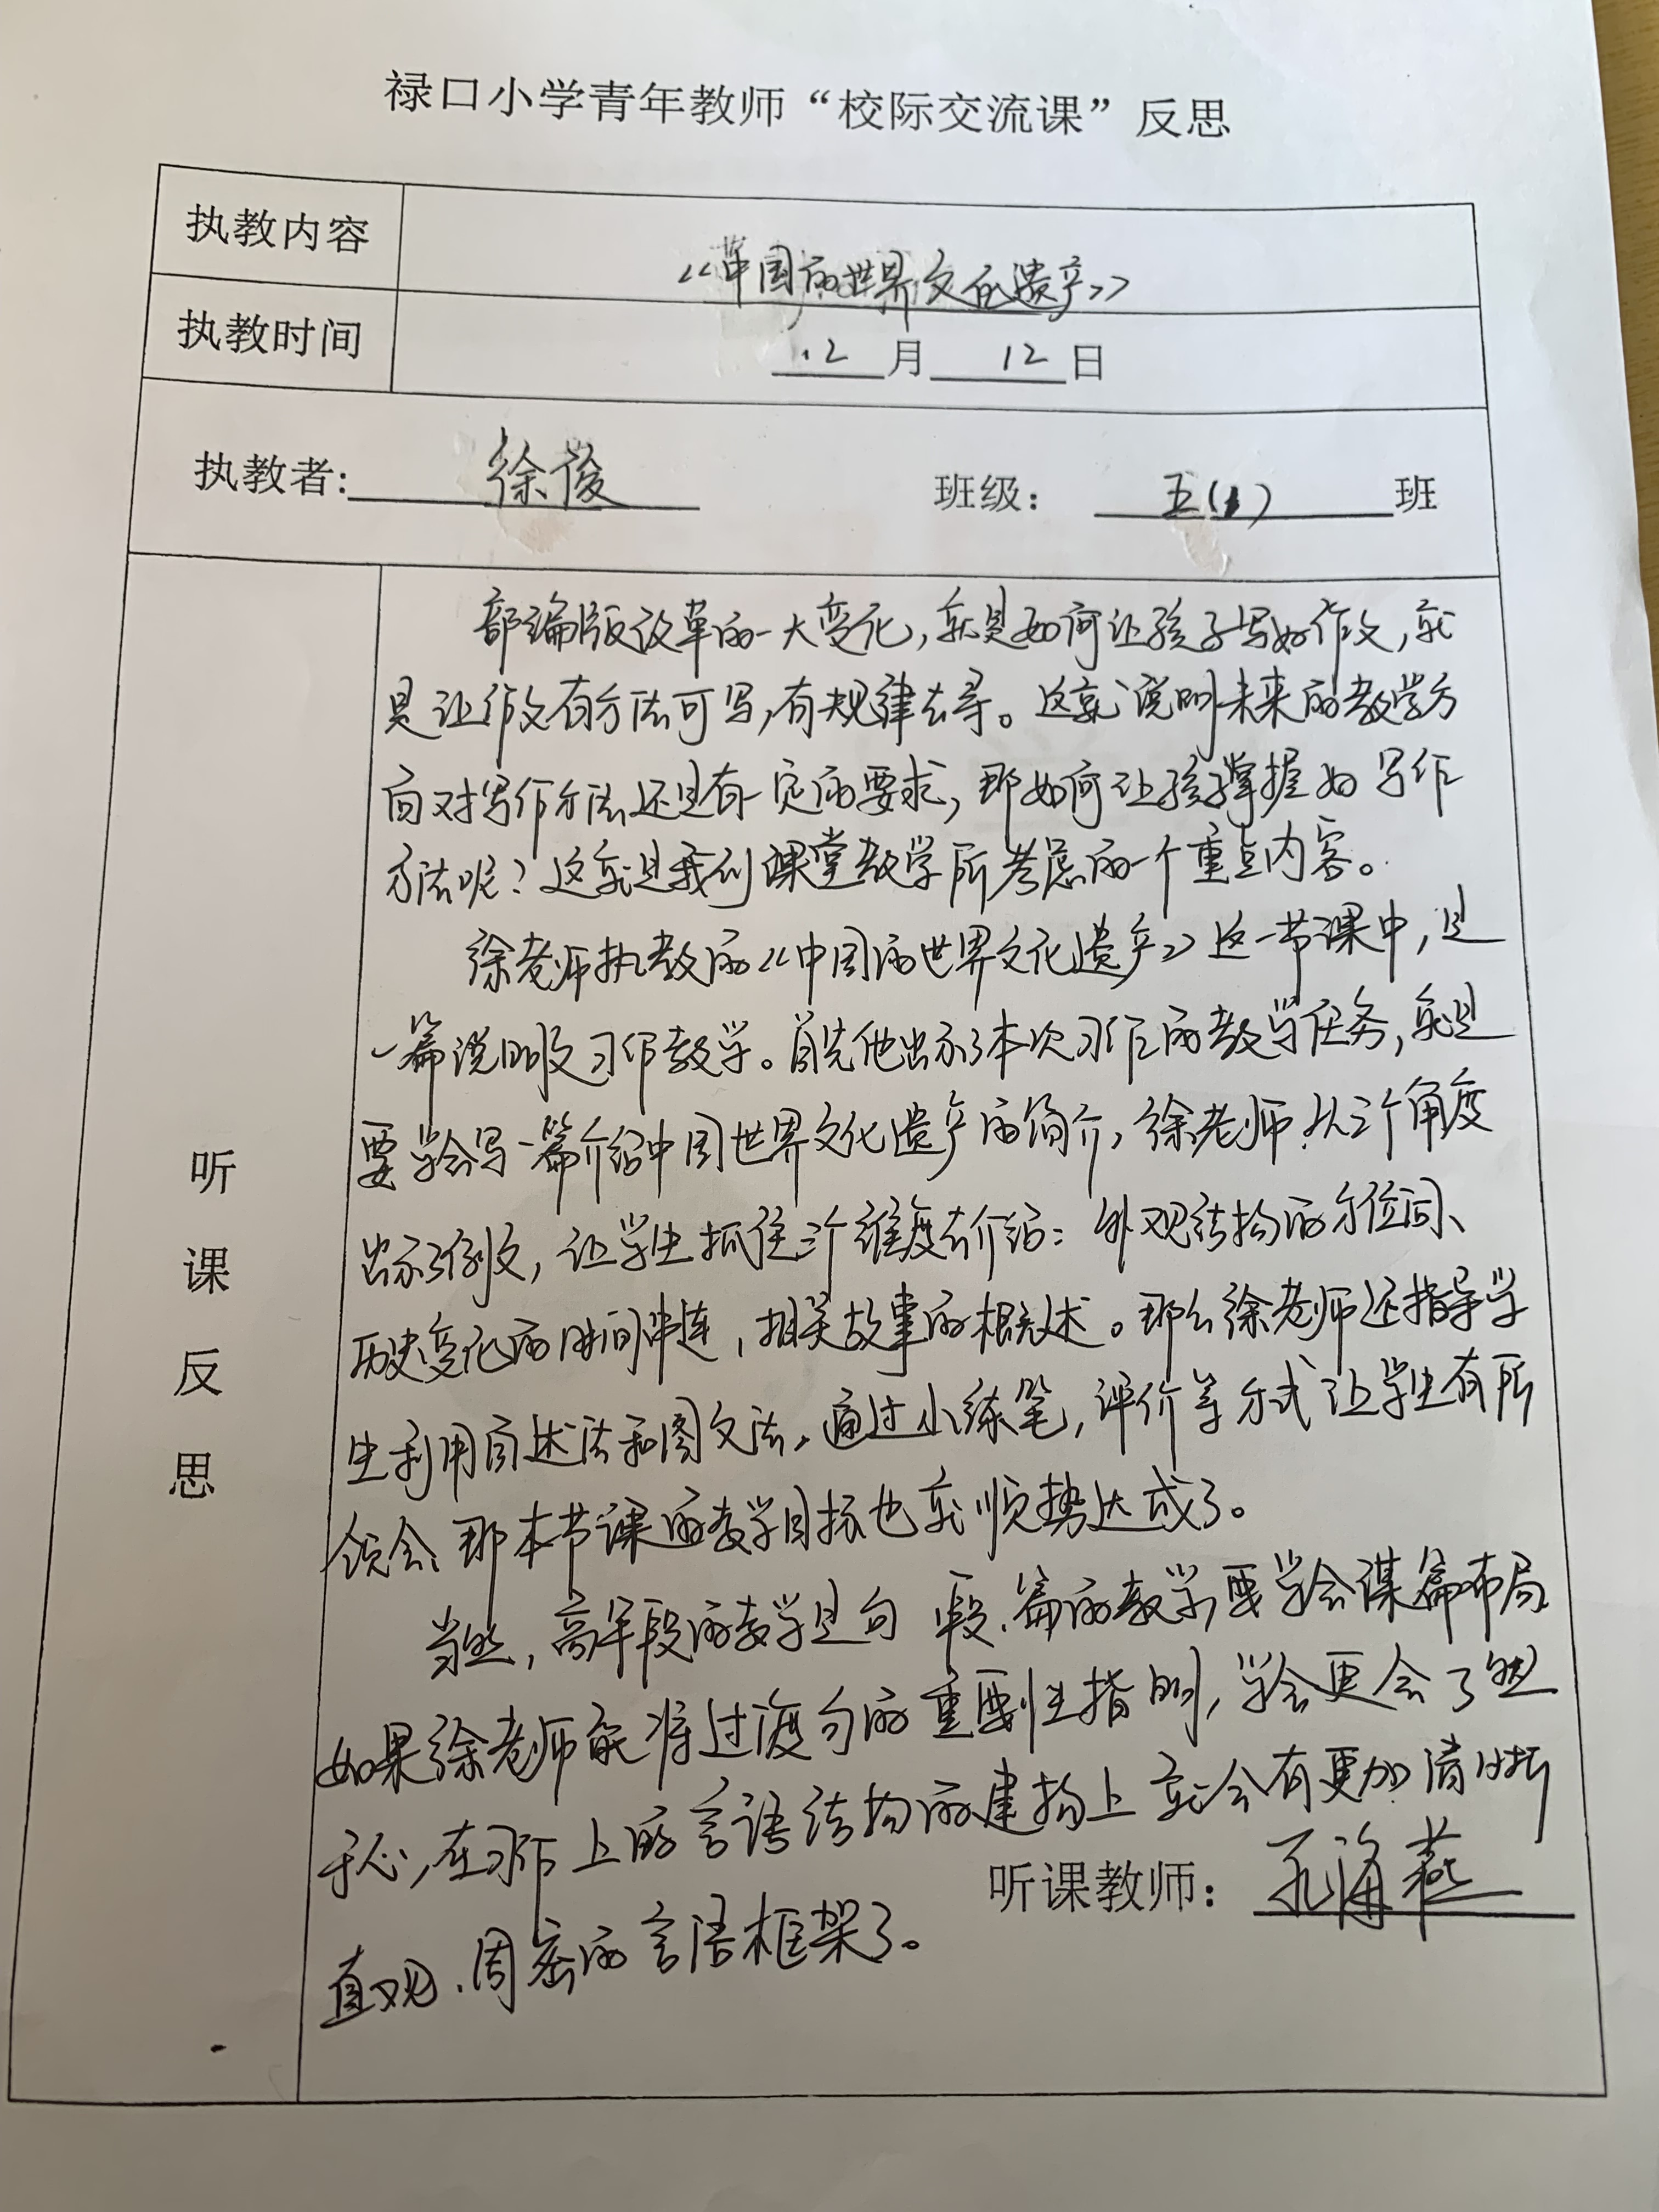 禄口小学青年教师“校际交流课”反思
执教内容
《中国的世界文化遗产》
执教时间
12月12日
执教者:徐俊 班级：五(1)班
听课反思
部编版改革的一大变化,就是如何让孩子写好作文,就
是让作文有方法可写,有规律去寻。这就说明未来的教学方
向对写作方法还是有一定的要求,那如何让孩子掌握好写作
方法呢?这就是我们课堂教学所考虑的一个重点内容。
徐老师执教的《中国的世界文化遗产》这一节课中,是
一篇说明文习作教学。首先他出示了本次习作的教学任务,就是
要学会写一篇介绍中国世界文化遗产的简介,徐老师从三个角度
出示了例文,让学生抓住三个维度去介绍:外观结构的方位词、
历史变化的时间串连,相关故事的概述。那么徐老师还指导学
生利用自述法和图文法,通过小练笔,评价等方式让学生有所
领会、那本节课的教学目标也就顺势达成了。
当然,高年段的教学是句 段、篇的教学,要学会谋篇布局
如果徐老师能将过渡句的重要性指明,学会更会了然
于心,在习作上的言语结构的建构上就会有更加清晰
直观、周密的言语框架了。
听课教师：孔海燕